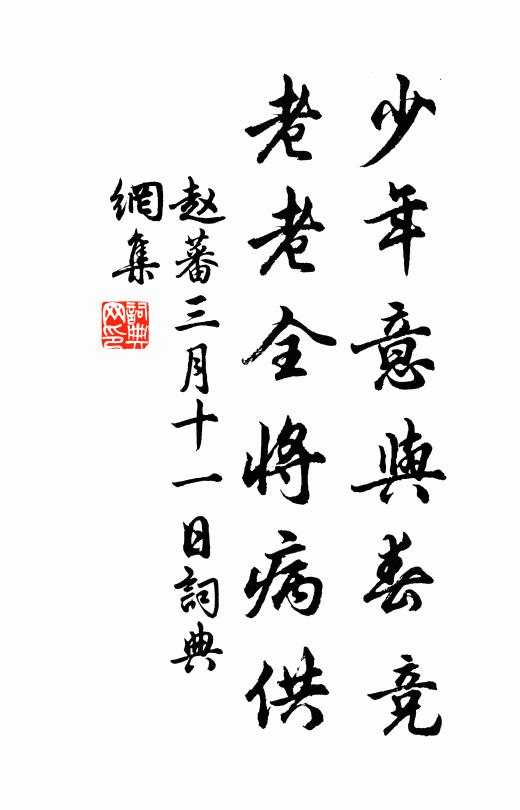 少年意與春竞
老老全將病供
赵蕃三月十一日詞典
網集
詞典
网印